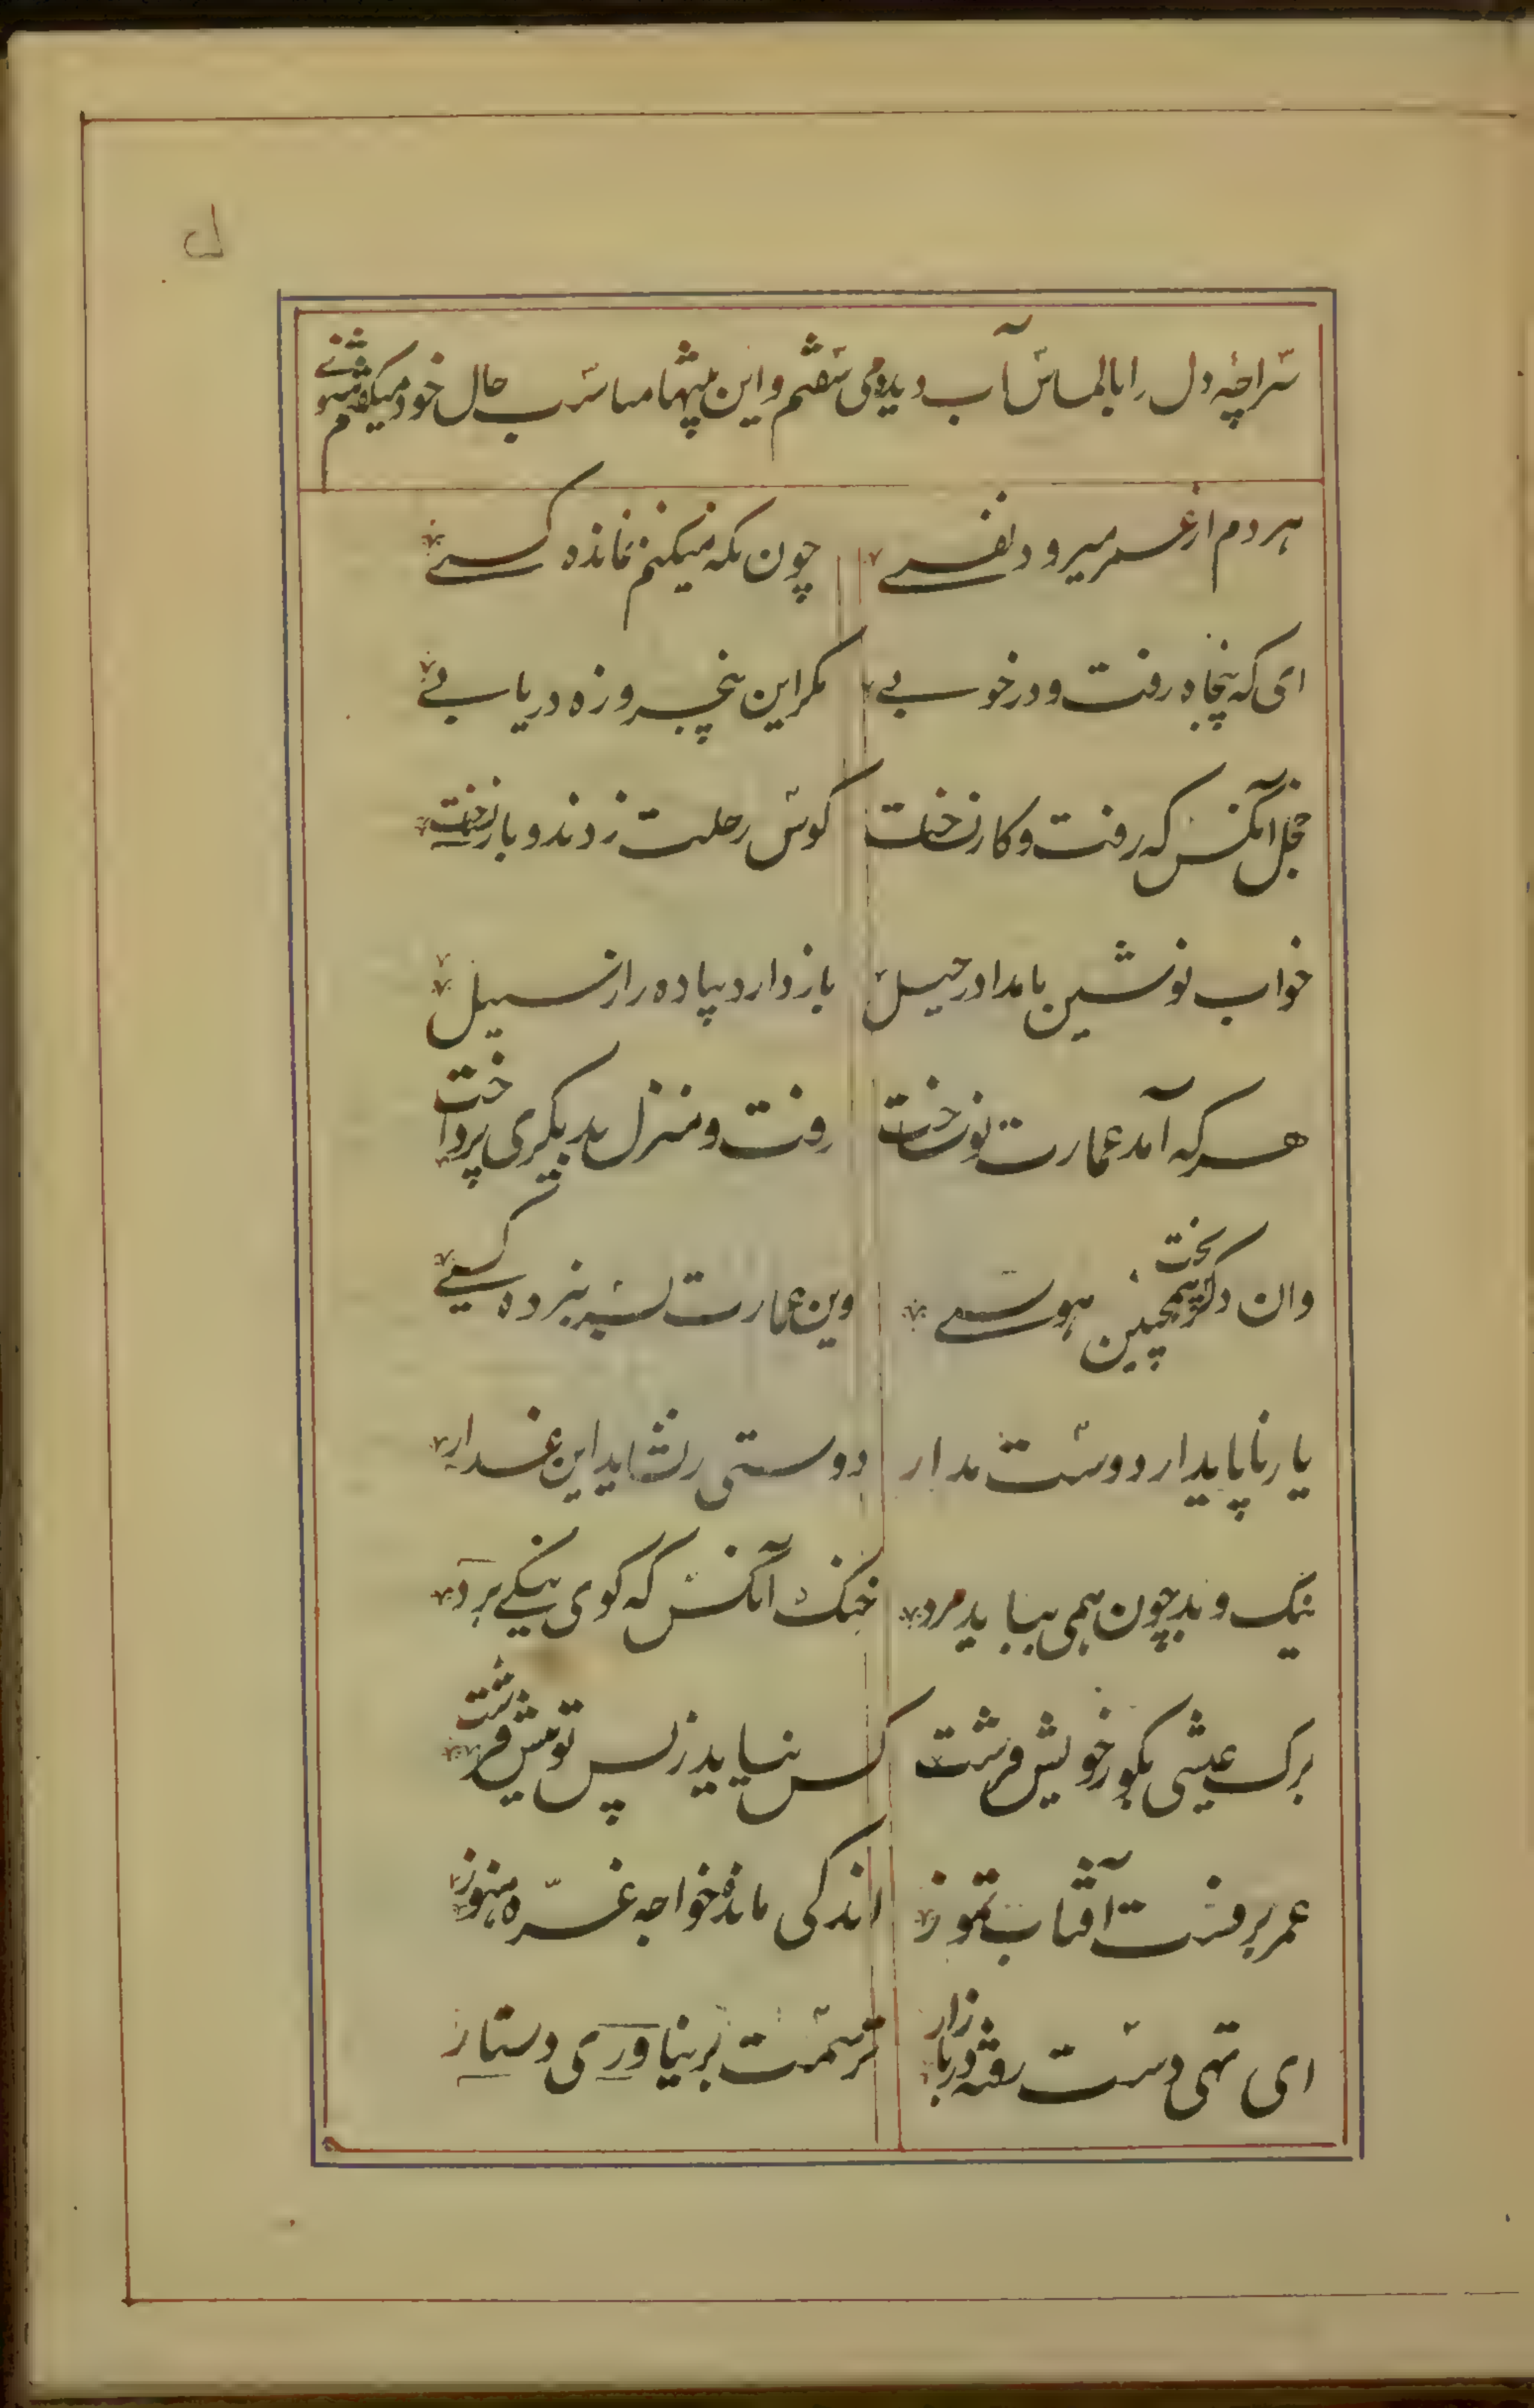 سراچهٔ دل را بالماس آب دیده می سفتم و این بیتها مناسب حال خود میگفتم مثنوی
هر دم از عمر میرود نفسے چون نگه میکنم نمانده کسے
ای که پنجاه رفت و در خوابے مگر این پنجروزه دریابے
خجل آنکس که رفت و کار نساخت کوس رحلت زدند و بار نساخت
خواب نوشین بامداد رحیل باز دارد پیاده را ز سبیل
هر که آمد عمارت نو ساخت رفت و منزل بدیگری پرداخت
وان دگر پخت همچنین هوسے وین عمارت بسر نبرده کسے
یار ناپایدار دوست مدار دوستی را نشاید این غدار
نیک و بد چون همی بباید مرد خنک آنکس که گوی نیکے برد
برک عیشی بگور خویش فرست کس نیاید ز پس تو پیش فرست
عمر برفست آفتاب تموز اندکی مانده خواجه غرّه هنوز
ای تهی دست رفته در بازار ترسمت بر نیاوری دستار